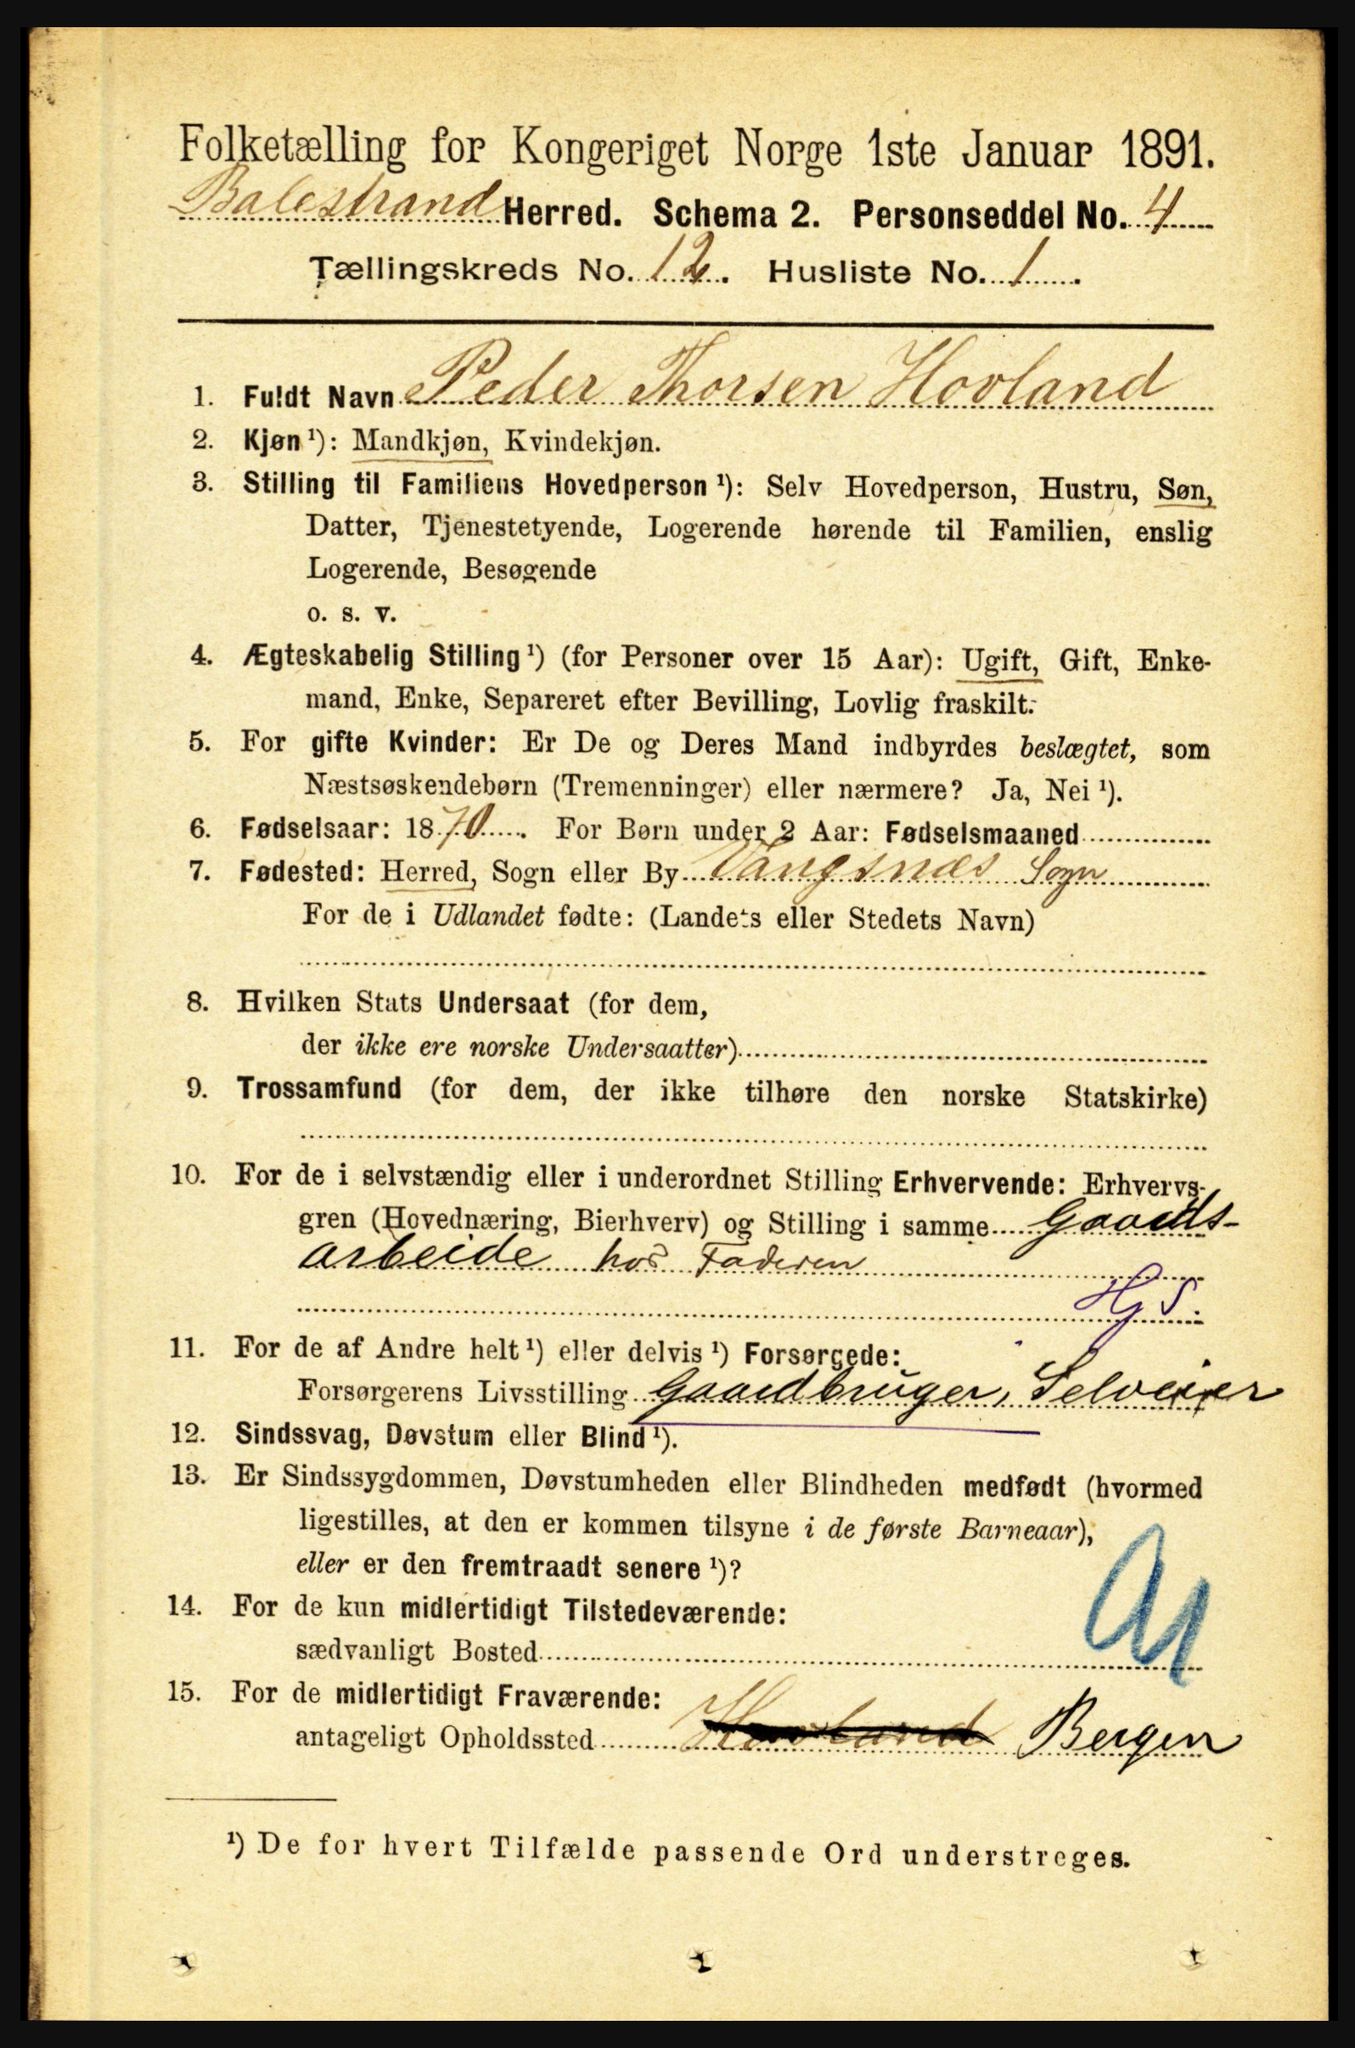 Folketælling for Kongeriget Norge 1ste Januar 1891.
Balestrand Herred. Schema 2. Personseddel No. 4
Tællingskreds No. 12. Husliste No. 1.
1. Fuldt Navn Peder Thorsen Hovland
2. Kjøn ¹): Mandkjøn, Kvindekjøn.
3. Stilling til Familiens Hovedperson ¹): Selv Hovedperson, Hustru, Søn,
Datter, Tjenestetyende, Logerende hørende til Familien, enslig
Logerende, Besøgende
o. s. v.
4. Ægteskabelig Stilling ¹) (for Personer over 15 Aar): Ugift, Gift, Enke-
mand, Enke, Separeret efter Bevilling, Lovlig fraskilt.
5. For gifte Kvinder: Er De og Deres Mand indbyrdes beslægtet, som
Næstsøskendebørn (Tremenninger) eller nærmere? Ja, Nei ¹).
6. Fødselsaar: 1870. For Børn under 2 Aar: Fødselsmaaned
7. Fødested: Herred, Sogn eller By Vangsnæs Sogn
For de i Udlandet fødte: (Landets eller Stedets Navn)
8. Hvilken Stats Undersaat (for dem,
der ikke ere norske Undersaatter)
9. Trossamfund (for dem, der ikke tilhøre den norske Statskirke)
10. For de i selvstændig eller i underordnet Stilling Erhvervende: Erhvervs-
gren (Hovednæring, Bierhverv) og Stilling i samme Gaards-
arbeide hos Faderen
HjS.
11. For de af Andre helt ¹) eller delvis ¹) Forsørgede:
Forsørgerens Livsstilling Gaardbruger, Selveier
12. Sindssvag, Døvstum eller Blind ¹).
13. Er Sindssygdommen, Døvstumheden eller Blindheden medfødt (hvormed
ligestilles, at den er kommen tilsyne i de første Barneaar),
eller er den fremtraadt senere ¹)?
14. For de kun midlertidigt Tilstedeværende:
sædvanligt Bosted
15. For de midlertidigt Fraværende:
antageligt Opholdssted Hovland Bergen
¹) De for hvert Tilfælde passende Ord understreges.